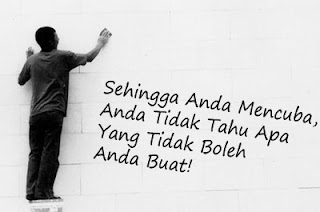 Sehingga Anda Mencuba,
Anda Tidak Tahu Apa
Yang Tidak Boleh
Anda Buat!